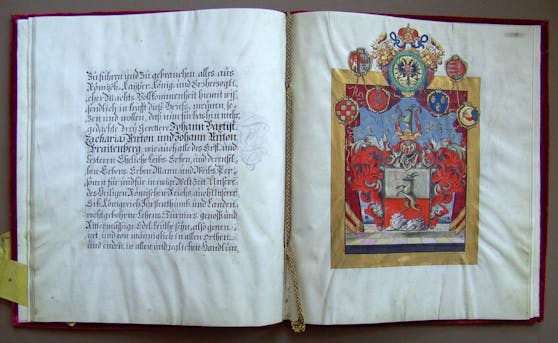 Zu führen und zu gebrauchen alles aus
Römisch. Kayser. König. und Erzherzogli-
cher Machts Vollkommenheit hiemit wis-
sentlich in krafft dieß Brieffs, meynen se-
zen und wollen, daß nun fürbashin mehr
gedachte drey Gevettere Johann Baptist,
Zacharias Anton und Johann Anton
Braitenberg, wie auch alle des Erst. und
lezteren Eheliche Leibs Erben, und derensel-
ben Erbens Erben Mann und Weibs Per-
sonen für und für in ewige Welt Zeit Unsere
des Heiligen Römischen Reichs auch Unserer
Erb Königreich Fürstenthumb und Landen
rechtgebohrne Lehens Turniers genoß und
Rittermässige Edel Leuthe seyn, also genen-
net, und von männiglich in allen Orthen
und enden, in allen und jeglichen Handlun